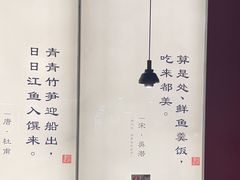 算是处、鲜鱼羹饭，
吃来都美。
—宋·吳潜
青青竹笋迎船出，
日日江鱼入馔来。
—唐·杜甫